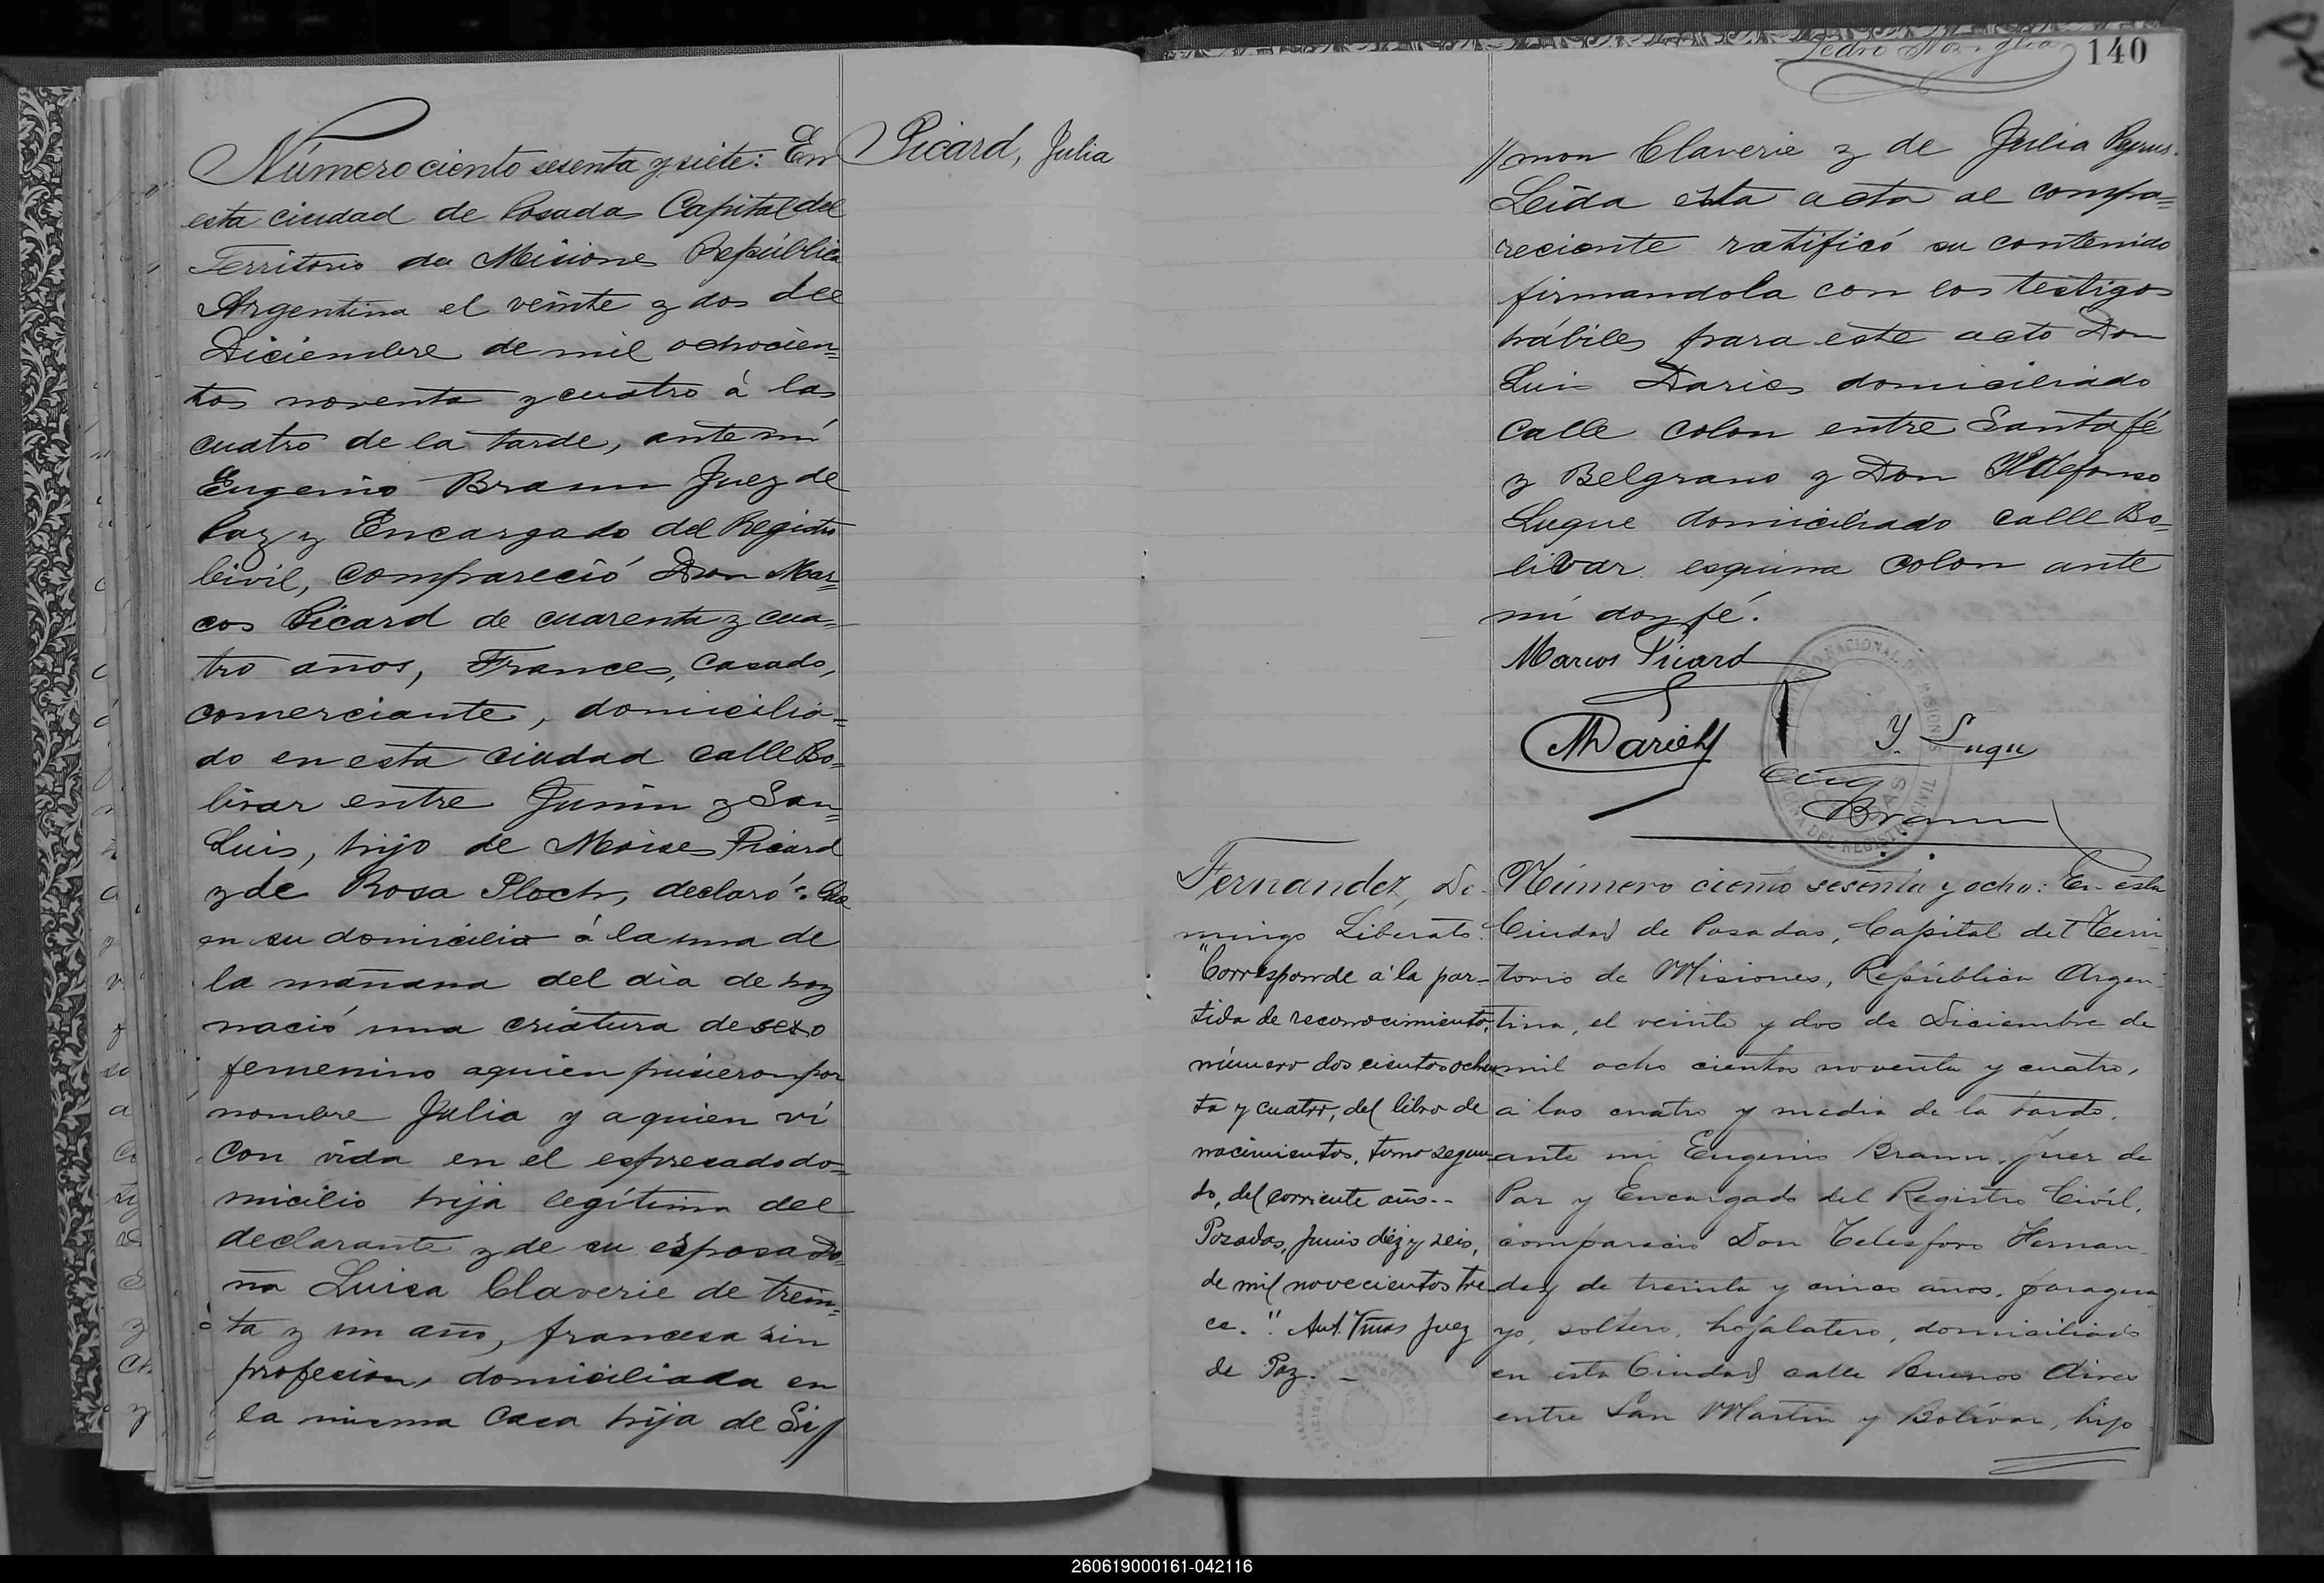 Picard, Julia
Número ciento sesenta y siete: En
esta ciudad de Posadas Capital del
Territorio de Misiones República
Argentina el veinte y dos de
Diciembre de mil ochocien=
tos noventa y cuatro á las
cuatro de la tarde, ante mí
Eugenio Braun Juez de
Paz y Encargado del Registro
Civil, compareció Don Mar=
cos Picard de cuarenta y cua=
tro años, Frances, casado,
comerciante, domicilia=
do en esta ciudad calle Bo=
livar entre Junin y San=
Luis, hijo de Moises Picard
y de Rosa Ploch, declaró: Que
en su domicilio á la una de
la mañana del dia de hoy
nació una criatura de sexo
femenino aquien pusieron por
nombre Julia y aquien ví
con vida en el espresado do=
micilio hija legítima del
declarante y de su esposa Do=
ña Luisa Claverie de trein=
ta y un año, francesa sin
profecion, domiciliada en
la misma casa hija de Si//
140
//mon Claverie y de Julia
Leida esta acta al compa=
reciente ratificó su contenido
firmandola con los testigos
hábiles para este acto Don
Luis Daries domiciliado
calle colon entre Santa fé
y Belgrano y Don Ildefonso
Luque domiciliado calle Bo=
livar esquina colon ante
mí doy fé.
Marcos Picard
Y. Luqu
Eug
Braun
Fernandez, Do-
mingo Liberato.
"Corresponde á la par-
tida de reconocimiento,
número dos cientos ochen
ta y cuatro, del libro de
nacimientos, tomo segun
do, del corriente año.--
Posadas, Junio diez y seis,
de mil novecientos tre
ce.". Ant. Viñas Juez
de Paz. -
Número ciento sesenta y ocho: En esta
Ciudad de Posadas, Capital del Terri-
torio de Misiones, República Argen-
tina, el veinte y dos de Diciembre de
mil ocho cientos noventa y cuatro,
a las cuatro y media de la tarde,
ante mi Eugenio Braun, Juez de
Paz y Encargado del Registro Civil,
compareció Don Telesforo Hernan-
dez de treinta y cinco años, paragua
yo, soltero, hojalatero, domiciliado
en esta Ciudad calle Buenos Aires
entre San Martin y Bolívar, hijo
260619000161-042116